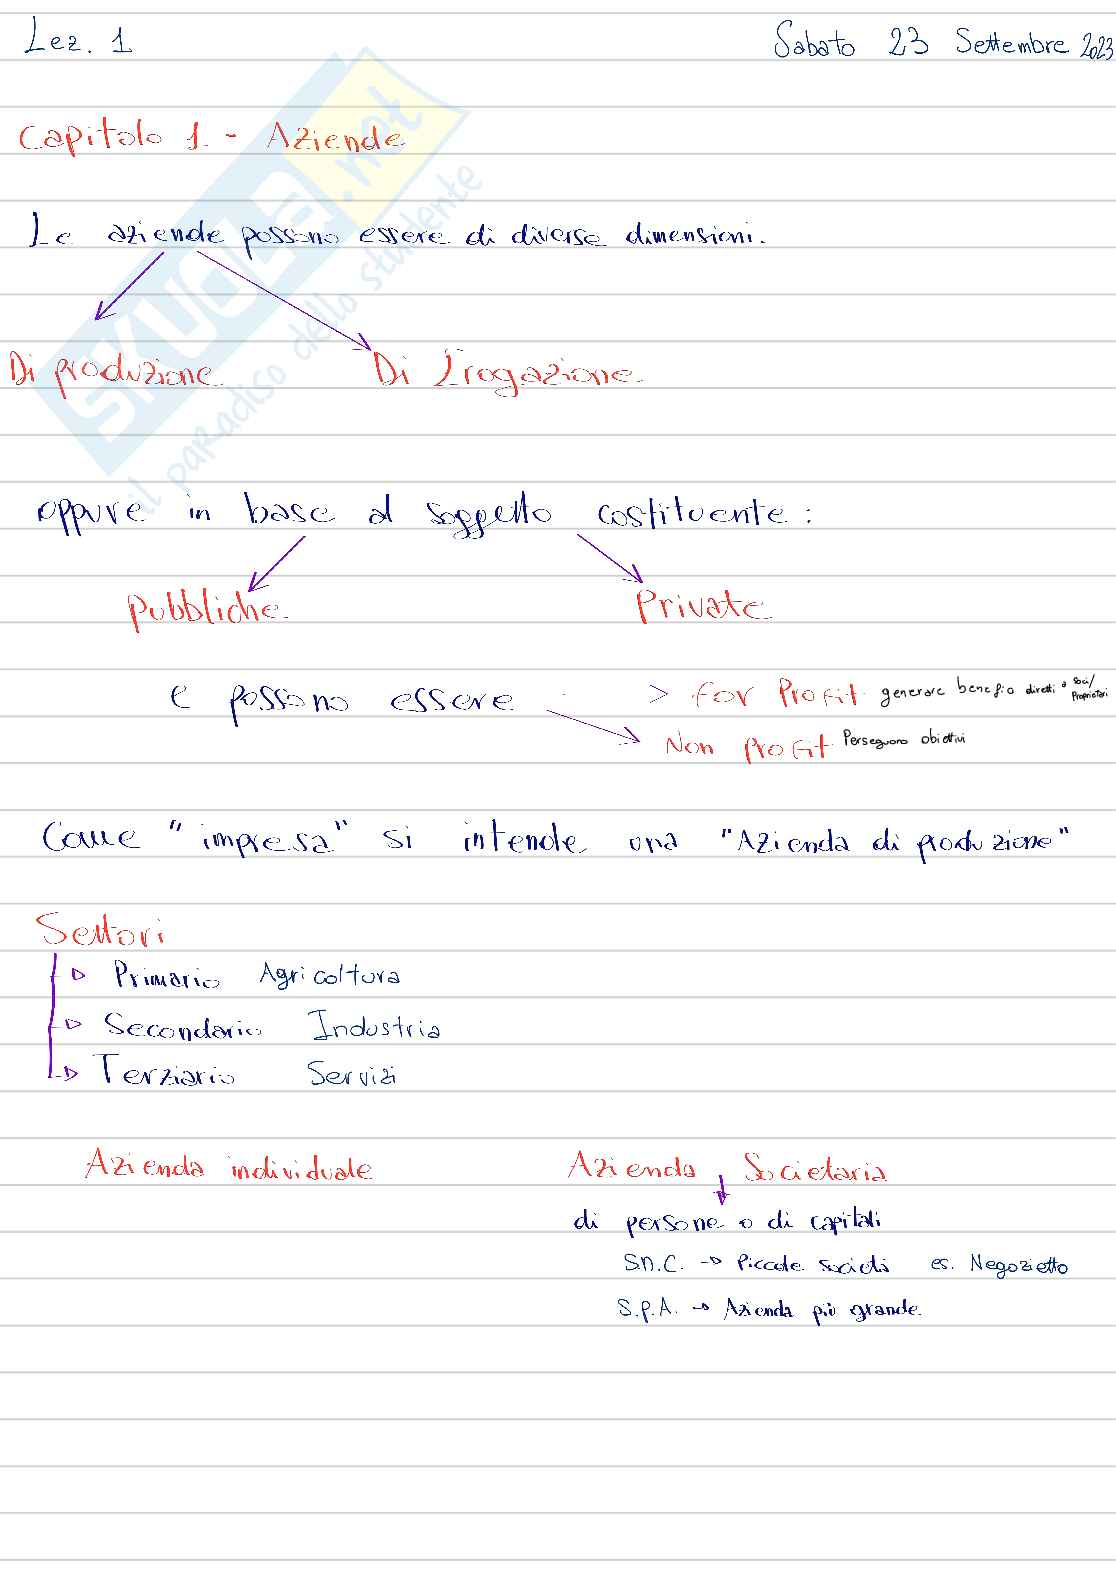 Lez. 1 Sabato 23 Settembre 2023
Capitolo 1 - Aziende
Le aziende possono essere di diverse dimensioni.
Di produzione Di Erogazione
oppure in base al soggetto costituente:
Pubbliche Private
e possono essere > For Profit generare beneficio diretti a soci/
Proprietari
Non Profit Perseguono obiettivi
Come "impresa" si intende una "Azienda di produzione"
Settori
Primario Agricoltura
Secondario Industria
Terziario Servizi
Azienda individuale Azienda Societaria
di persone o di capitali
S.n.C. → Piccole società es. Negozietto
S.p.A. → Azienda più grande
SKUOLA.net
il paradiso dello studente